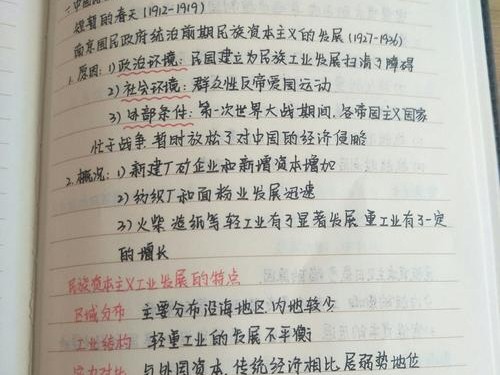 短暂的春天(1912-1919)
南京国民政府统治前期民族资本主义的发展(1927-1936)
1.原因:1)政治环境:民国建立为民族工业发展扫清了障碍
2)社会环境:群众性反帝爱国运动
3)外部条件:第一次世界大战期间,各帝国主义国家
忙于战争暂时放松了对中国的经济侵略
2.概况:1)新建厂矿企业和新增资本增加
2)纺织厂和面粉业发展迅速
3)火柴 造纸等轻工业有了显著发展 重工业有了一定
的增长
民族资本主义工业发展的特点
区域分布 主要分布沿海地区,内地较少
工业结构 轻重工业的发展不平衡
与外国资本,传统经济相比,居弱势地位